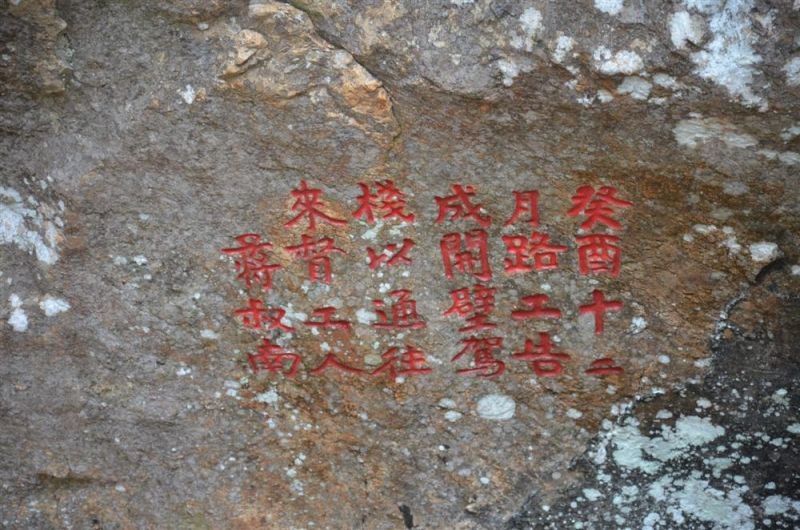 癸酉十二
月路工告
成開壁駕
棧以通往
來督工人
蔣叔南